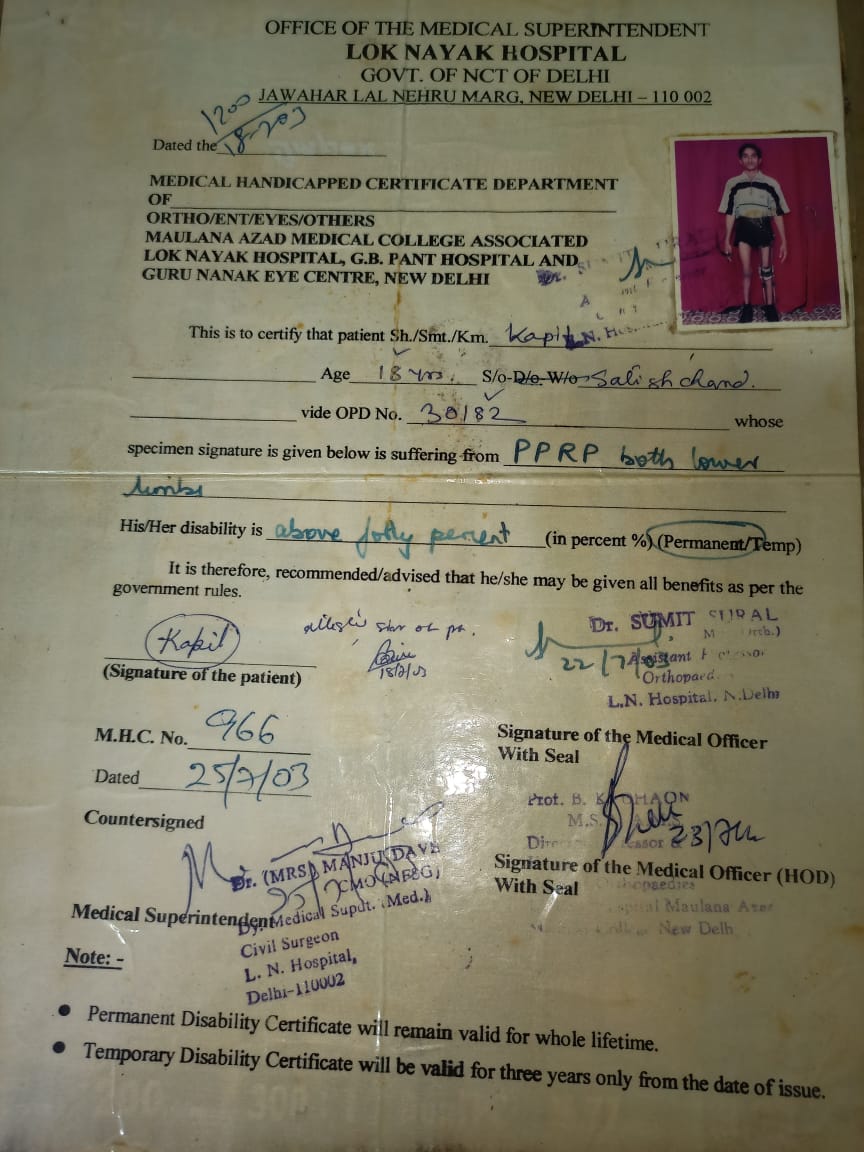 OFFICE OF THE MEDICAL SUPERINTENDENT
LOK NAYAK HOSPITAL
GOVT. OF NCT OF DELHI
JAWAHAR LAL NEHRU MARG, NEW DELHI – 110 002
1200
Dated the 18-7-03
MEDICAL HANDICAPPED CERTIFICATE DEPARTMENT
OF
ORTHO/ENT/EYES/OTHERS
MAULANA AZAD MEDICAL COLLEGE ASSOCIATED
LOK NAYAK HOSPITAL, G.B. PANT HOSPITAL AND
GURU NANAK EYE CENTRE, NEW DELHI
This is to certify that patient Sh./Smt./Km. Kapil
Age 18 yrs. S/o-D/o-W/o Satish chand.
vide OPD No. 30182 whose
specimen signature is given below is suffering from PPRP both lower
limbs
His/Her disability is above forty percent (in percent %) (Permanent/Temp)
It is therefore, recommended/advised that he/she may be given all benefits as per the
government rules.
Kapil
18/7/03
(Signature of the patient)
Dr. SUMIT SURAL
22/7/03
Assistant
Orthopaed
L.N. Hospital, N.Delhi
M.H.C. No. 966
Signature of the Medical Officer
With Seal
Dated 25/7/03
Countersigned
Prof. B.
M.S.
23/7
Dr. (MRS) MANJU DAVE
CMO (NFSG)
Signature of the Medical Officer (HOD)
With Seal
Orthopaedics
Medical Superintendent
Dy. Medical Supdt. (Med.)
Maulana Azad
New Delh
Civil Surgeon
L. N. Hospital,
Delhi-110002
Note: -
• Permanent Disability Certificate will remain valid for whole lifetime.
• Temporary Disability Certificate will be valid for three years only from the date of issue.